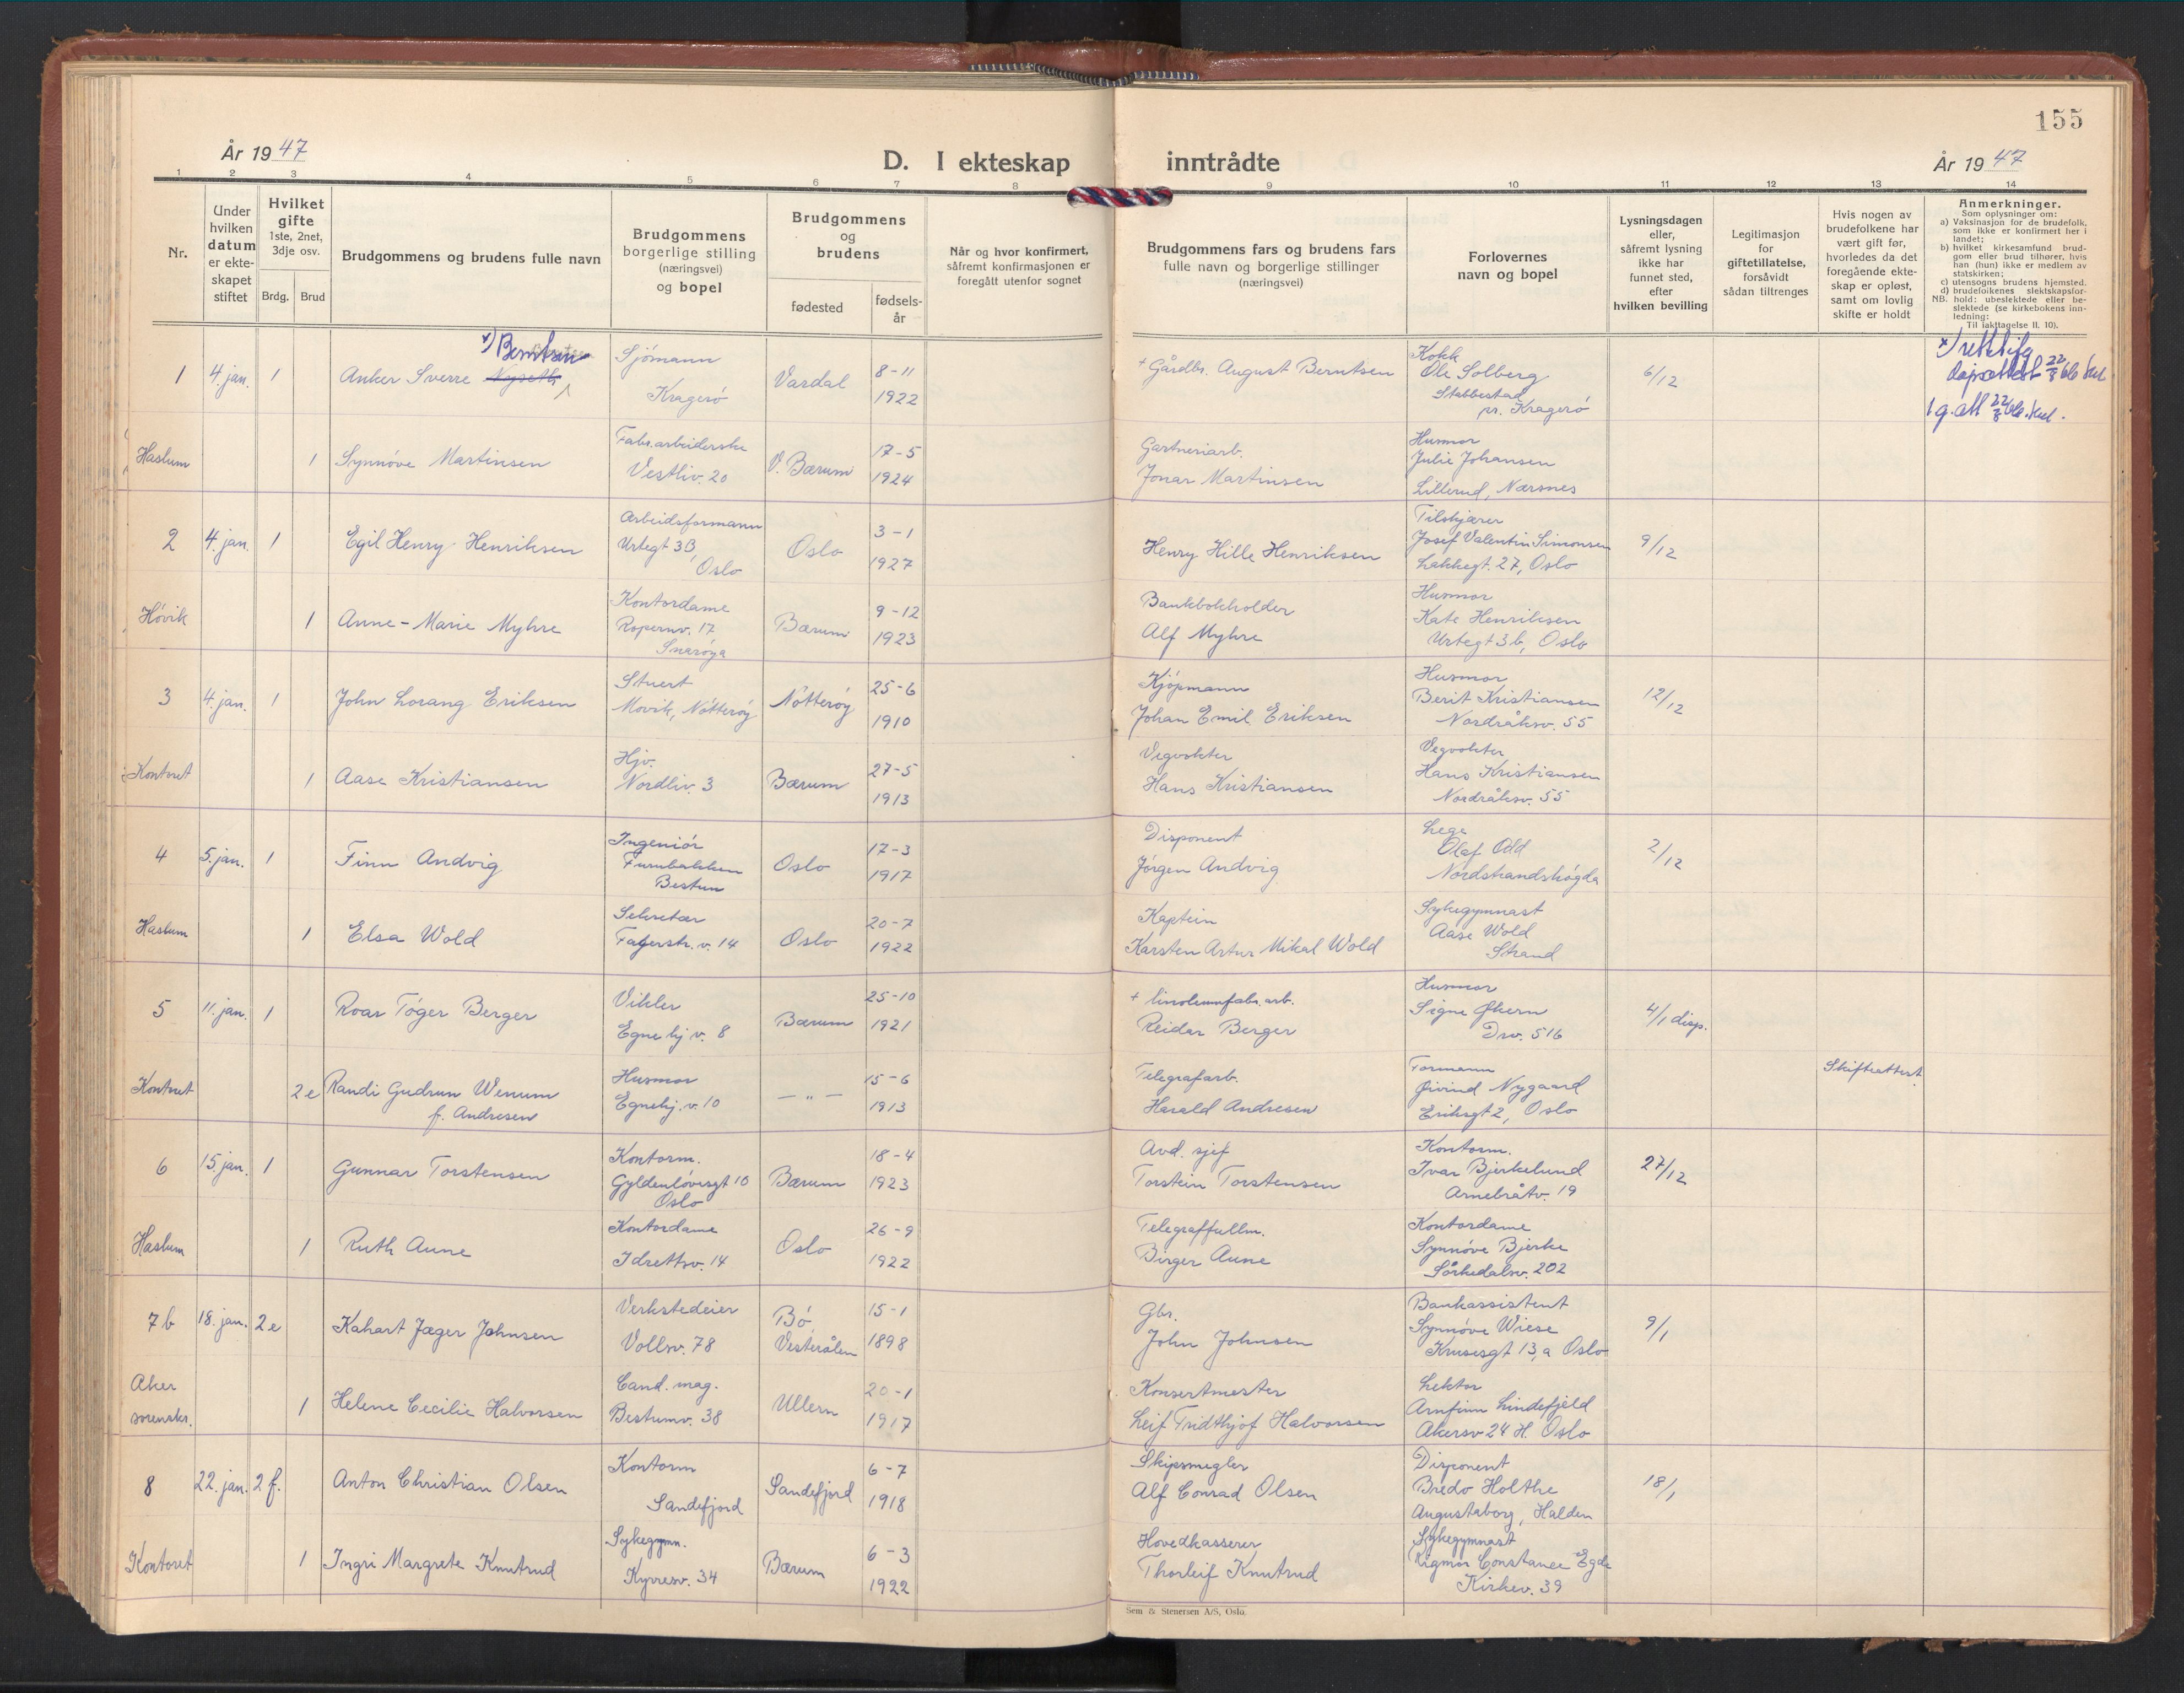 155
År 1947
D. I ekteskap inntrådte
År 1947
1 2 3 4 5 6 7 8 9 10 11 12 13 14
Nr.
Under hvilken datum er ekteskapet stiftet
Hvilket gifte 1ste, 2net, 3dje osv.
Brdg. Brud
Brudgommens og brudens fulle navn
Brudgommens borgerlige stilling (næringsvei) og bopel
Brudgommens og brudens
fødested
fødselsår
Når og hvor konfirmert, såfremt konfirmasjonen er foregått utenfor sognet
Brudgommens fars og brudens fars fulle navn og borgerlige stillinger (næringsvei)
Forlovernes navn og bopel
Lysningsdagen eller, såfremt lysning ikke har funnet sted, efter hvilken bevilling
Legitimasjon for giftetillatelse, forsåvidt sådan tiltrenges
Hvis nogen av brudefolkene har vært gift før, hvorledes da det foregående ekteskap er opløst, samt om lovlig skifte er holdt
Anmerkninger.
Som oplysninger om:
a) Vaksinasjon for de brudefolk, som ikke er konfirmert her i landet;
b) hvilket kirkesamfund brudgom eller brud tilhører, hvis han (hun) ikke er medlem av statskirken;
c) utensogns brudens hjemsted.
d) brudefolkenes slektskapsforhold: ubeslektede eller beslektede (se kirkebokens innledning:
NB.
Til iakttagelse II. 10).
1 4. jan. 1 Anker Sverre Nyseth x) Berntsen
Sjömann Kragerö
Vardal 8-11 1922
+ Gårdbr. August Berntsen
Kokk Ole Solberg Stabbestad pr. Kragerö
6/12
Haslum 1 Synnöve Martinsen
Fabr.arbeiderske Vestliv. 20
V. Bærum 17-5 1924
Gartneriarb. Jonar Martinsen
Husmor Julie Johansen Lillerud, Nærsnes
2 4. jan. 1 Egil Henry Henriksen
Arbeidsformann Urtegt 3B, Oslo
Oslo 3-1 1927
Henry Hille Henriksen
Tilskjærer Josef Valentin Simonsen Lakkegt. 27, Oslo
9/12
Hövik 1 Anne-Marie Myhre
Kontordame Ropernv. 17 Snaröya
Bærum 9-12 1923
Bankbokholder Alf Myhre
Husmor Kate Henriksen Urtegt 3b, Oslo
3 4. jan. 1 John Lorang Eriksen
Stuert Movik, Nötteröy
Nötteröy 25-6 1910
Kjöpmann Johan Emil Eriksen
Husmor Berit Kristiansen Nordråksv. 55
12/12
Kontoret 1 Aase Kristiansen
Hjv. Nordliv. 3
Bærum 27-5 1913
Vegvokter Hans Kristiansen
Vegvokter Hans Kristiansen Nordråksv. 55
4 5. jan. 1 Finn Andvig
Ingeniör Furubakken Bestun
Oslo 17-3 1917
Disponent Jörgen Andvig
Lege Olaf Odd Nordstrandshögda
2/12
Haslum 1 Elsa Wold
Sekretær Fagerstr.v. 14
Oslo 20-7 1922
Kaptein Karsten Artur Mikal Wold
Sykegymnast Aase Wold Strand
5 11. jan. 1 Roar Töger Berger
Vikler Egne hj v. 8
Bærum 25-10 1921
+ linoleumfabr. arb. Reidar Berger
Husmor Signe Økern Drv. 516
4/1 disp.
Kontoret 2e Randi Gudrun Wenum f. Andresen
Husmor Egnehj.v. 10
— " — 15-6 1913
Telegrafarb. Harald Andresen
Formann Øivind Nygaard Eriksgt 2, Oslo
Skifteattest
6 15. jan. 1 Gunnar Torstensen
Kontorm. Gyldenlövesgt 10 Oslo
Bærum 18-4 1923
Avd. sjef Torstein Torstensen
Kontorm. Ivar Bjerkelund Arnebråtv. 19
27/12
Haslum 1 Ruth Aune
Kontordame Idrettsv. 14
Oslo 26-9 1922
Telegraffullm. Birger Aune
Kontordame Synnöve Bjerke Sörkedalsv. 202
7b 18. jan. 2e Kahart Jæger Johnsen
Verkstedeier Vollsv. 78
Bö Vesterålen 15-1 1898
Gbr. John Johnsen
Bankassistent Synnöve Wiese Krusesgt 13,a Oslo
9/1
Aker sorenskr. 1 Helene Cecilie Halvorsen
Cand. mag. Bestumv. 38
Ullern 20-1 1917
Konsertmester Leif Fridthjof Halvorsen
Lektor Arnfinn Lindefjeld Akersv 24 H. Oslo
8 22. jan. 2 f. Anton Christian Olsen
Kontorm Sandefjord
Sandefjord 6-7 1918
Skipsmegler Alf Conrad Olsen
Disponent Bredo Holthe Augustaborg, Halden
18/1
Kontoret 1 Ingri Margrete Knutrud
Sykegymn. Kyrresv. 34
Bærum 6-3 1922
Hovedkasserer Thorleif Knutrud
Sykegymnast Rigmor Constance Egde Kirkev. 39
Sem & Stenersen A/S, Oslo.